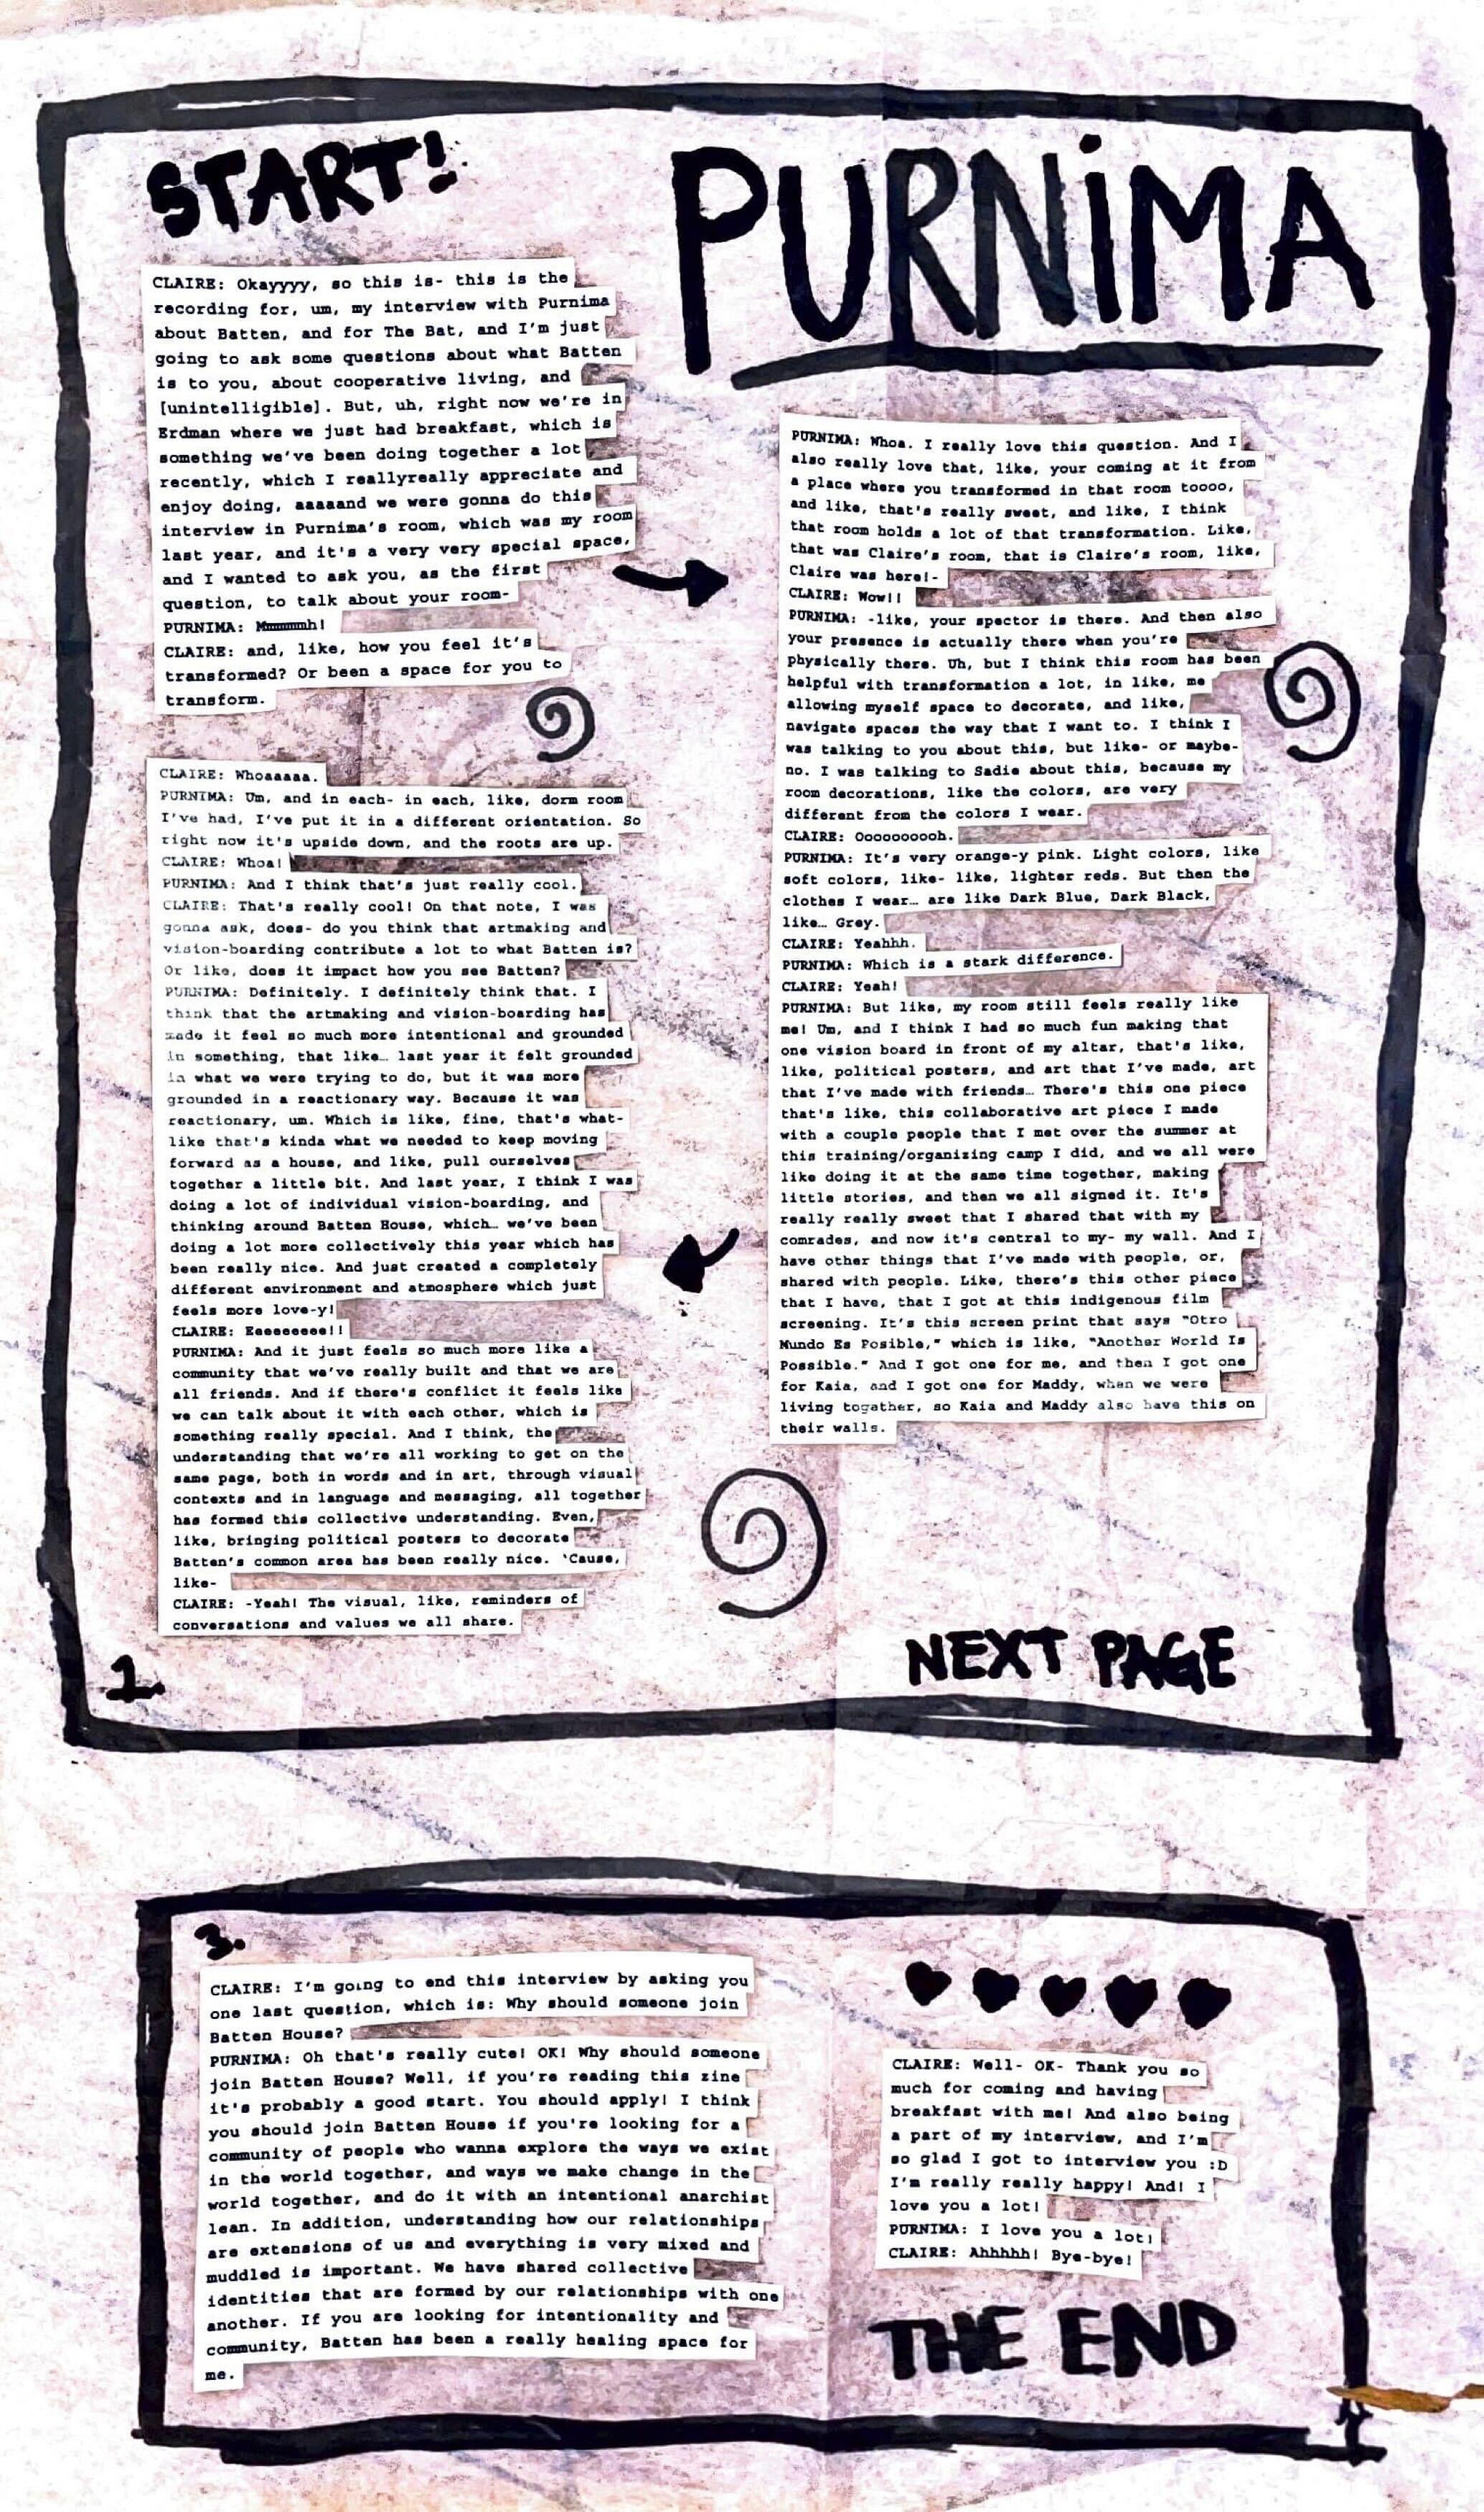 START!
PURNiMA
CLAIRE: Okayyyy, so this is- this is the
recording for, um, my interview with Purnima
about Batten, and for The Bat, and I'm just
going to ask some questions about what Batten
is to you, about cooperative living, and
[unintelligible]. But, uh, right now we're in
Erdman where we just had breakfast, which is
something we've been doing together a lot
recently, which I reallyreally appreciate and
enjoy doing, aaaaand we were gonna do this
interview in Purnima's room, which was my room
last year, and it's a very very special space,
and I wanted to ask you, as the first
question, to talk about your room-
PURNIMA: Mmmmmmh!
CLAIRE: and, like, how you feel it's
transformed? Or been a space for you to
transform.
PURNIMA: Whoa. I really love this question. And I
also really love that, like, your coming at it from
a place where you transformed in that room toooo,
and like, that's really sweet, and like, I think
that room holds a lot of that transformation. Like,
that was Claire's room, that is Claire's room, like,
Claire was here!-
CLAIRE: Wow!!
PURNIMA: -like, your spector is there. And then also
your presence is actually there when you're
physically there. Uh, but I think this room has been
helpful with transformation a lot, in like, me
allowing myself space to decorate, and like,
navigate spaces the way that I want to. I think I
was talking to you about this, but like- or maybe-
no. I was talking to Sadie about this, because my
room decorations, like the colors, are very
different from the colors I wear.
CLAIRE: Ooooooooooh.
PURNIMA: It's very orange-y pink. Light colors, like
soft colors, like- like, lighter reds. But then the
clothes I wear… are like Dark Blue, Dark Black,
like… Grey.
CLAIRE: Yeahhh.
PURNIMA: Which is a stark difference.
CLAIRE: Yeah!
PURNIMA: But like, my room still feels really like
me! Um, and I think I had so much fun making that
one vision board in front of my altar, that's like,
like, political posters, and art that I've made, art
that I've made with friends… There's this one piece
that's like, this collaborative art piece I made
with a couple people that I met over the summer at
this training/organizing camp I did, and we all were
like doing it at the same time together, making
little stories, and then we all signed it. It's
really really sweet that I shared that with my
comrades, and now it's central to my- my wall. And I
have other things that I've made with people, or,
shared with people. Like, there's this other piece
that I have, that I got at this indigenous film
screening. It's this screen print that says "Otro
Mundo Es Posible," which is like, "Another World Is
Possible." And I got one for me, and then I got one
for Kaia, and I got one for Maddy, when we were
living together, so Kaia and Maddy also have this on
their walls.
CLAIRE: Whoaaaaa.
PURNIMA: Um, and in each- in each, like, dorm room
I've had, I've put it in a different orientation. So
right now it's upside down, and the roots are up.
CLAIRE: Whoa!
PURNIMA: And I think that's just really cool.
CLAIRE: That's really cool! On that note, I was
gonna ask, does- do you think that artmaking and
vision-boarding contribute a lot to what Batten is?
Or like, does it impact how you see Batten?
PURNIMA: Definitely. I definitely think that. I
think that the artmaking and vision-boarding has
made it feel so much more intentional and grounded
in something, that like… last year it felt grounded
in what we were trying to do, but it was more
grounded in a reactionary way. Because it was
reactionary, um. Which is like, fine, that's what-
like that's kinda what we needed to keep moving
forward as a house, and like, pull ourselves
together a little bit. And last year, I think I was
doing a lot of individual vision-boarding, and
thinking around Batten House, which… we've been
doing a lot more collectively this year which has
been really nice. And just created a completely
different environment and atmosphere which just
feels more love-y!
CLAIRE: Eeeeeeeee!!
PURNIMA: And it just feels so much more like a
community that we've really built and that we are
all friends. And if there's conflict it feels like
we can talk about it with each other, which is
something really special. And I think, the
understanding that we're all working to get on the
same page, both in words and in art, through visual
contexts and in language and messaging, all together
has formed this collective understanding. Even,
like, bringing political posters to decorate
Batten's common area has been really nice. 'Cause,
like-
CLAIRE: -Yeah! The visual, like, reminders of
conversations and values we all share.
1.
NEXT PAGE
3.
CLAIRE: I'm going to end this interview by asking you
one last question, which is: Why should someone join
Batten House?
PURNIMA: Oh that's really cute! OK! Why should someone
join Batten House? Well, if you're reading this zine
it's probably a good start. You should apply! I think
you should join Batten House if you're looking for a
community of people who wanna explore the ways we exist
in the world together, and ways we make change in the
world together, and do it with an intentional anarchist
lean. In addition, understanding how our relationships
are extensions of us and everything is very mixed and
muddled is important. We have shared collective
identities that are formed by our relationships with one
another. If you are looking for intentionality and
community, Batten has been a really healing space for
me.
CLAIRE: Well- OK- Thank you so
much for coming and having
breakfast with me! And also being
a part of my interview, and I'm
so glad I got to interview you :D
I'm really really happy! And! I
love you a lot!
PURNIMA: I love you a lot!
CLAIRE: Ahhhhh! Bye-bye!
THE END